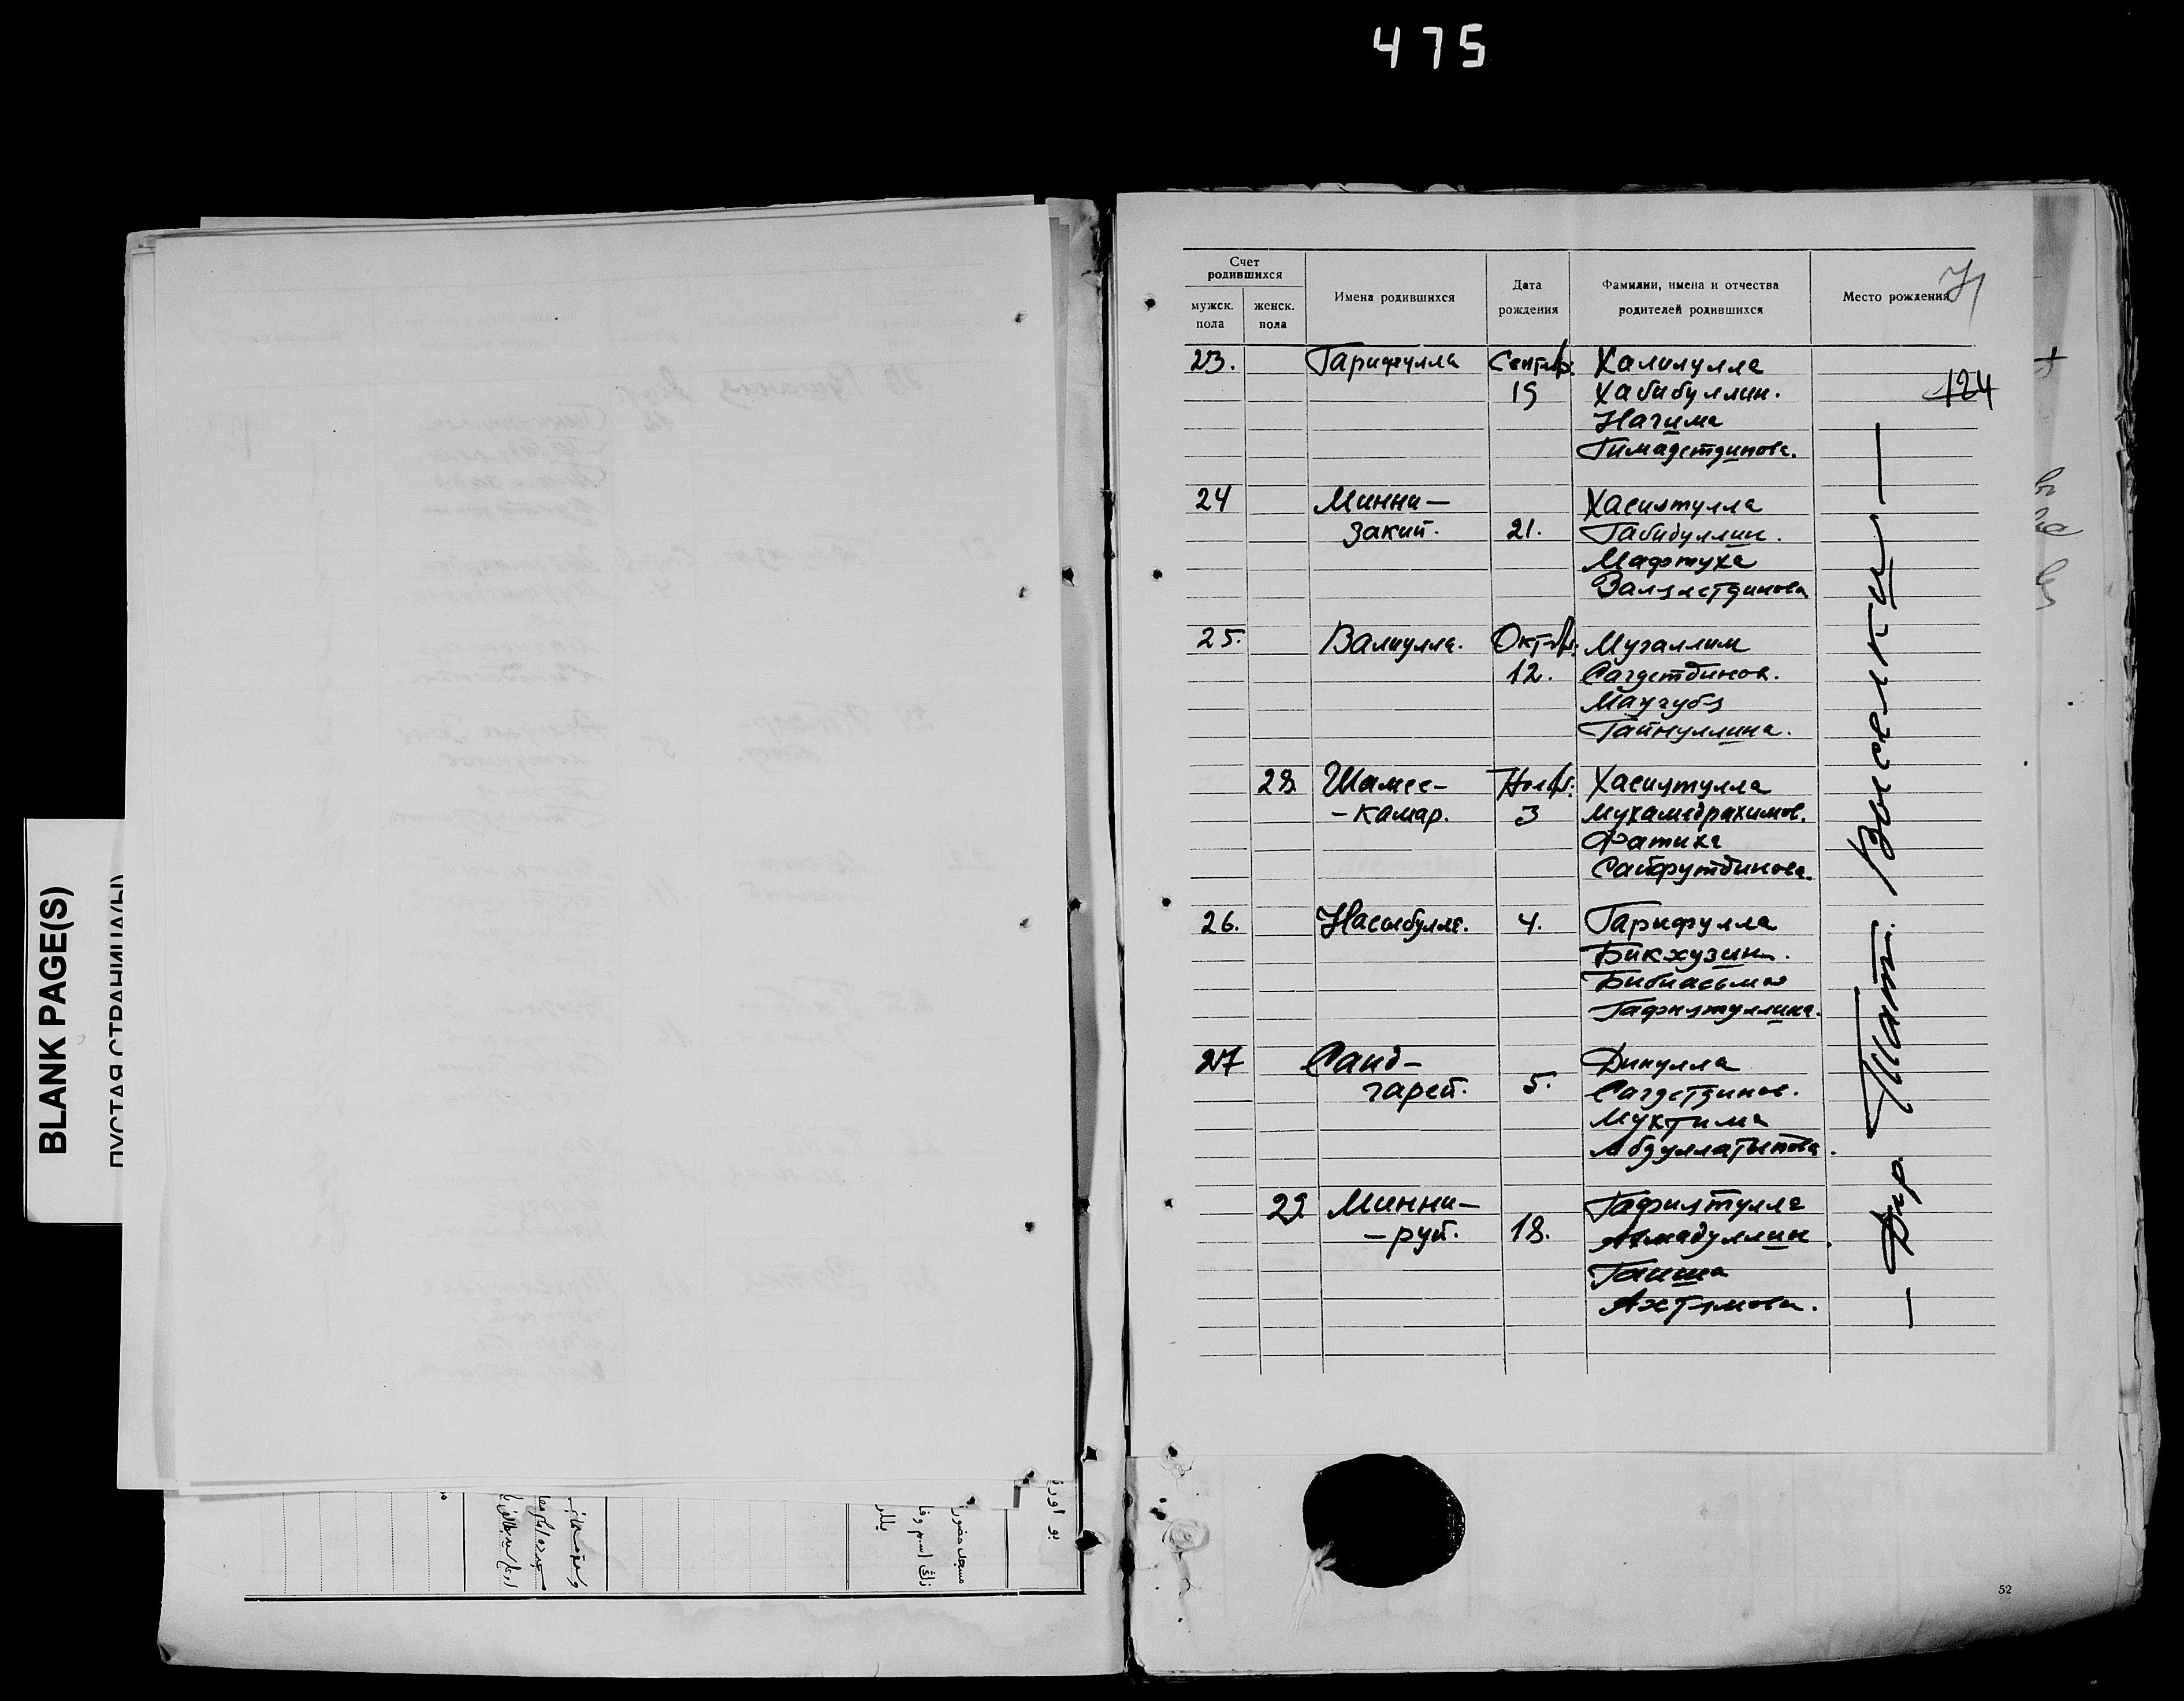 475
BLANK PAGE(S)
ПУСТАЯ СТРАНИЦА(Ы)
Счет родившихся
мужск. пола
женск. пола
Имена родившихся
Дата рождения
Фамилии, имена и отчества родителей родившихся
Место рождения
71
124
23. Гарифулла Сентяб: Халилулла
19 Хабибуллин.
Нагима
Гимадетдинова.
24 Минни- Хасиятулла
закий. 21. Габидуллин.
Мафтуха
Валялетдинова
25. Валиулла. Октяб: Мугаллим
12. Сагдетдинов.
Маугубя
Гайнуллина.
28. Шамсе- Нояб: Хасиятулла
-камар. 3 Мухамедрахимов.
Фатиха
Сайфутдинова.
26. Насыбулла. 4. Гарифулла
Бикхузин.
Гафиятуллина.
27 Саид- Динулла
гарей. 5. Сагдетдинов.
Муктима
Абдуллатыпова.
29. Минни- Гафиятулла
-руй. 18. Ахмадуллин.
Гайша
Ахтямова.
— Дер. Тат.
52